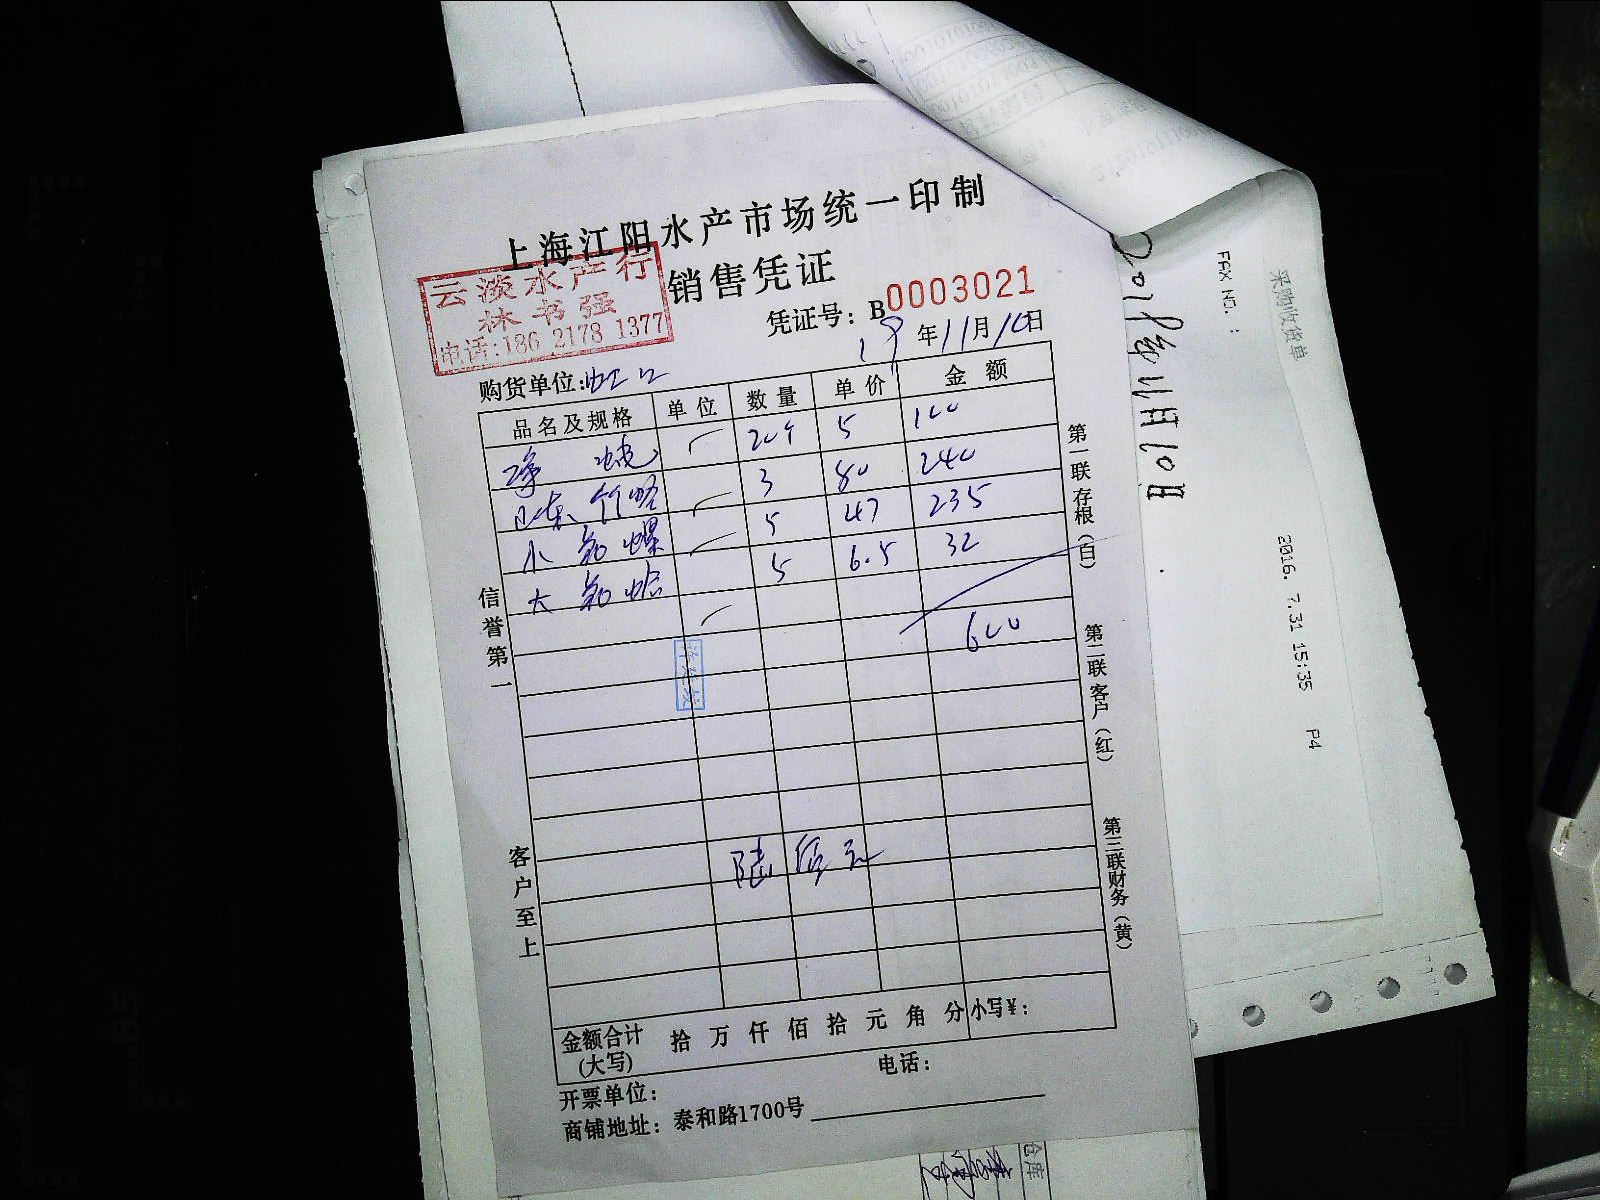 上海江阳水产市场统一印制
销售凭证
云淡水产行
林书强
电话:186 2178 1377
凭证号：B0003021
年11月10日
购货单位:
品名及规格 单位 数量 单价 金额
5 100
3 80 240
小 5 47 235
大 5 6.5 32
600
陆佰元
信誉第一
客户至上
第一联存根(白)
第二联客户(红)
第三联财务(黄)
金额合计(大写) 拾 万 仟 佰 拾 元 角 分 小写¥:
开票单位： 电话：
商铺地址：泰和路1700号
采购收货单
FAX NO. :
11月10日
2016. 7.31 15:35 P4
仓库